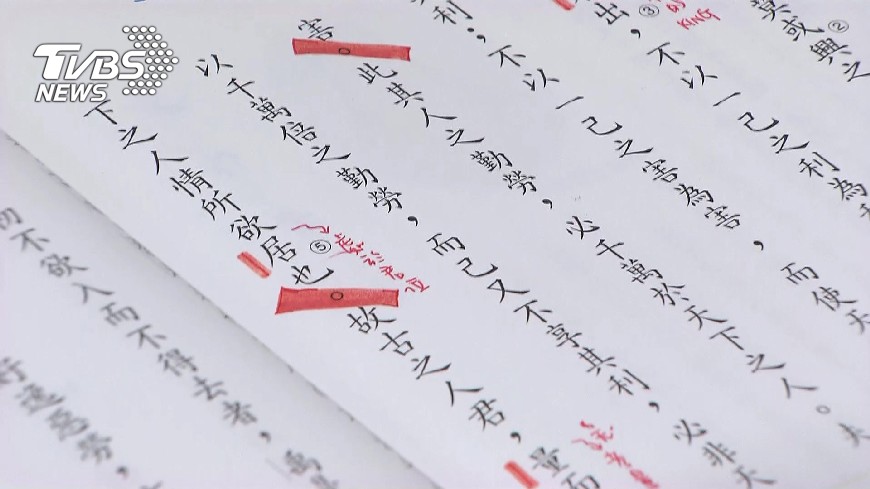 莫或興②之
出，③不以一己之利為
KING
利；不以一己之害為害，而使天
害。此其人之勤勞，必千萬於天下之人。夫
以千萬倍之勤勞，而己又不享其利，必非天
下之人情所欲居⑤也。故古之人君，量而
不欲入而不得去者，
好逸惡勞，
TVBS
NEWS